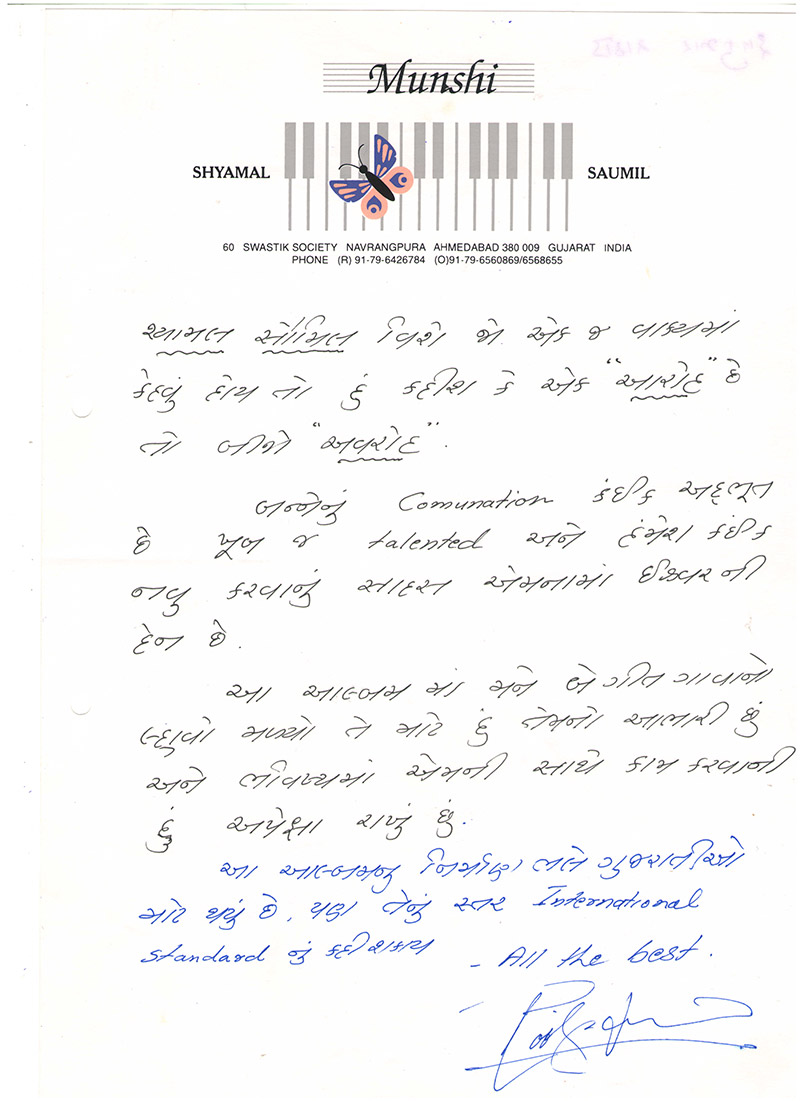 Munshi
SHYAMAL SAUMIL
60 SWASTIK SOCIETY NAVRANGPURA AHMEDABAD 380 009 GUJARAT INDIA
PHONE (R) 91-79-6426784 (O)91-79-6560869/6568655
શ્યામલ સૌમિલ વિશે જો એક જ વાક્યમાં
કહેવું હોય તો હું કહીશ કે એક "આરોહ" છે
તો બીજો "અવરોહ".
બન્નેનું Comunation કંઈક અદ્ભૂત
છે ખૂબ જ talented અને હંમેશ કંઈક
નવુ કરવાનું સાહસ એમનામાં ઈશ્વરની
દેન છે.
આ આલ્બમ માં મને બે ગીત ગાવાનો
લ્હાવો મળ્યો તે માટે હું તેમનો આભારી છું
અને ભવિષ્યમાં એમની સાથે કામ કરવાની
હું અપેક્ષા રાખું છું.
આ આલ્બમનુ નિર્માણ ભલે ગુજરાતીઓ
માટે થયું છે, પણ તેનું સ્તર International
Standard નું કહી શકાય - All the best.